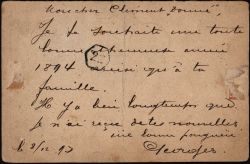 Mon cher Clément Donné,
Je te souhaite une toute
bonne heureuse année
1894 ainsi qu'à ta
famille.
Il y a bien longtemps que
je n'ai reçu de tes nouvelles
une bonne poignée
Georges